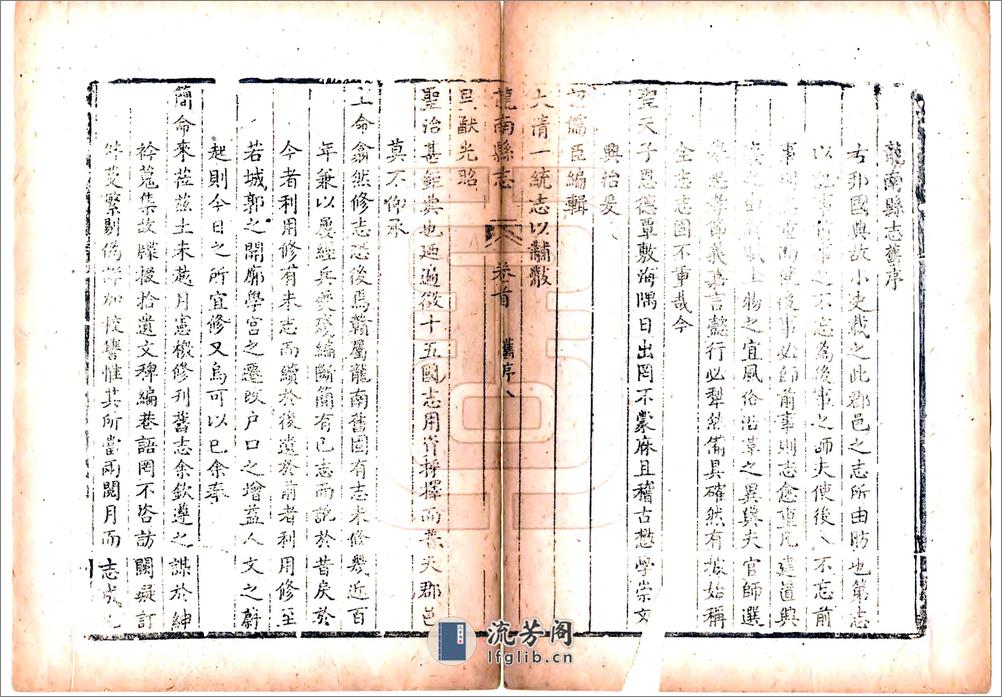 龍南縣志舊序
古邦國典故小史掌之此郡邑之志所由昉也第志
以記前事之不忘為後事之師夫使後人不忘前
事而後事必師前事則志愈重凡建道興
土物之宜風俗沿革之異與夫官師選
節義嘉言懿行必犁然備具確然有據始稱
全志志固不重哉今
聖天子恩德覃敷海隅日出罔不蒙庥且稽古懋學崇文
興治爰
儒臣編輯
大清一統志以黼黻
龍南縣志 卷首 舊序 八
猷光昭
聖治甚鉅典也迺遍徵十五國志用資採擇而叢夫郡邑
莫不仰承
上命翕然修志恐後焉贛屬龍南舊固有志未修幾近百
年兼以屢經兵燹殘編斷簡有已志而訛於昔戾於
今者利用修有未志而續於後遺於前者利用修至
若城郭之開廓學宮之遷改戶口之增益人文之蔚
起則今日之所宜修又烏可以已余奉
簡命來蒞茲土未越月憲檄修刊舊志余欽遵之謀於紳
衿蒐集故牒掇拾遺文稗編巷語罔不咨訪闕疑訂
芟繁剔偽詳加校讐惟其所當兩閱月而志成
流芳阁
lfglib.cn